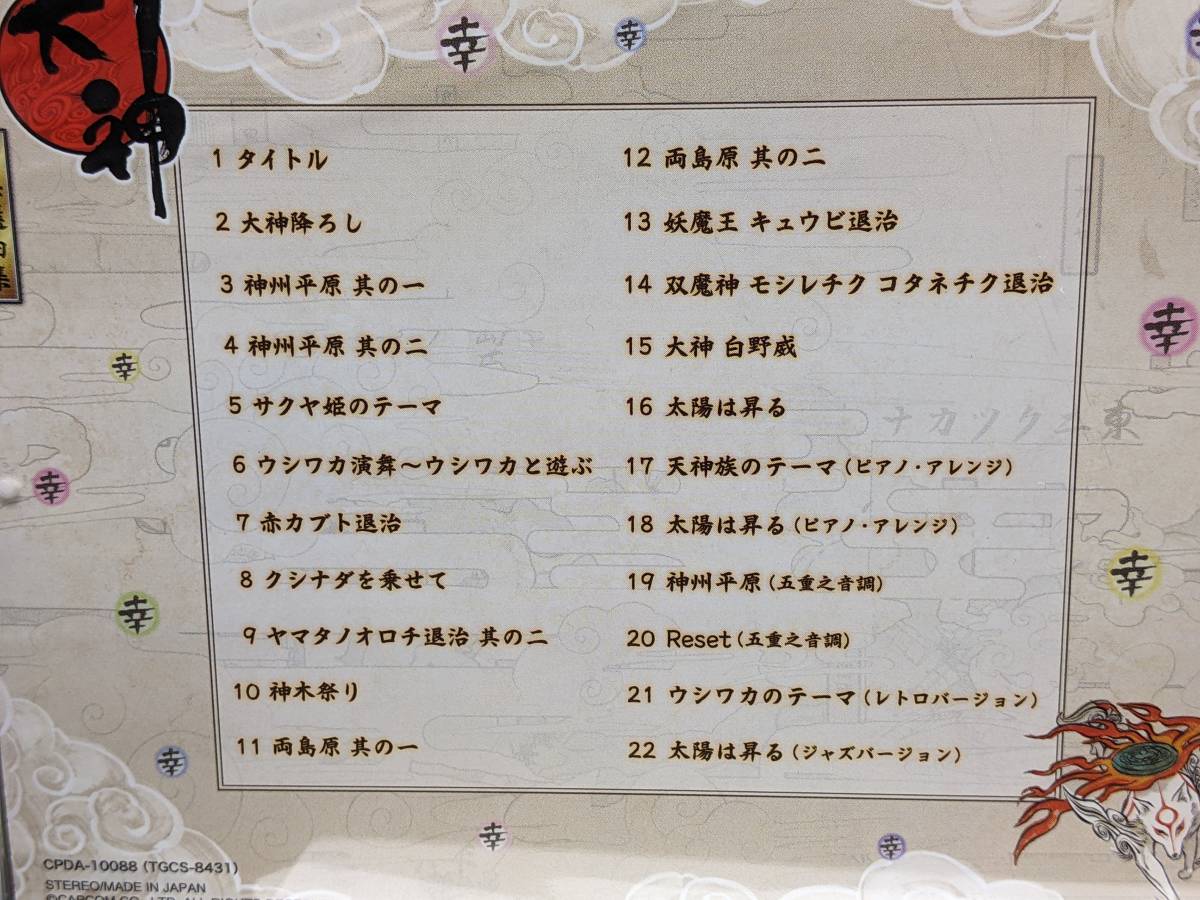 大神
幸 幸
1 タイトル
2 大神降ろし
3 神州平原 其の一
4 神州平原 其の二
5 サクヤ姫のテーマ
6 ウシワカ演舞～ウシワカと遊ぶ
7 赤カブト退治
8 クシナダを乗せて
9 ヤマタノオロチ退治 其の二
10 神木祭り
11 両島原 其の一
12 両島原 其の二
13 妖魔王 キュウビ退治
14 双魔神 モシレチク コタネチク退治
15 大神 白野威
16 太陽は昇る
17 天神族のテーマ（ピアノ・アレンジ）
18 太陽は昇る（ピアノ・アレンジ）
19 神州平原（五重之音調）
20 Reset（五重之音調）
21 ウシワカのテーマ（レトロバージョン）
22 太陽は昇る（ジャズバージョン）
幸
幸
幸
幸
幸
幸
幸
幸
CPDA-10088 (TGCS-8431)
STEREO/MADE IN JAPAN
©CAPCOM CO., LTD. ALL RIGHTS